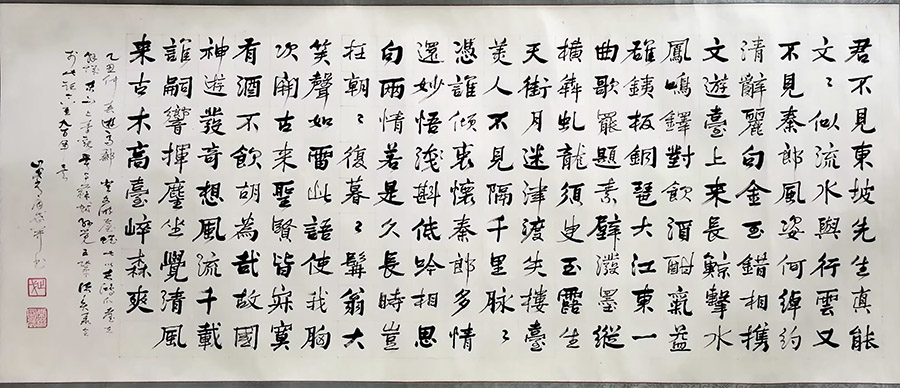 君不見東坡先生真能
文〻似流水與行雲又
不見秦郎風姿何綽約
清辭麗句金玉錯相攜
文遊臺上來長鯨擊水
鳳鳴鐸對飲酒酣氣益
雄鐵板銅琶大江東一
曲歌罷題素壁潑墨縱
橫犇虬龍須臾玉露生
天街月迷津渡失樓臺
美人不見隔千里脉〻
憑誰傾衷懷秦郎多情
還妙悟淺斟低吟相思
句兩情若是久長時豈
在朝〻復暮〻髯翁大
笑聲如雷此語使我胸
次開古來聖賢皆寂寞
看酒不飲胡為哉故國
神遊發奇想風流千載
誰嗣響揮麈坐覺清風
來古木高臺崪森爽
乙丑